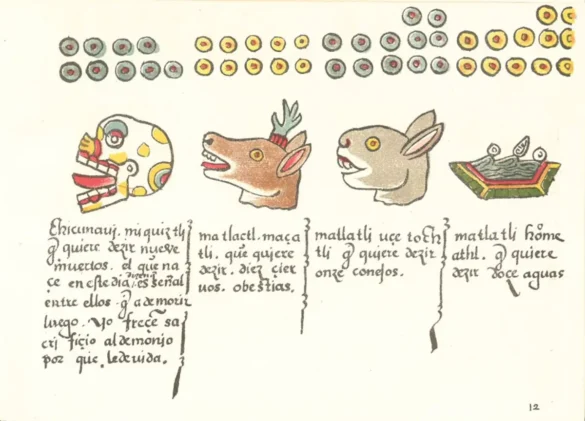 chicunavi. miquiztli
q̃ quiere dezir nueve
muertos. el que na
ce en este dia, es señal
entre ellos q̃ a de morir
luego. yo freçe sa
cri fiçio al demonio
por que. le de vida.
matlactl. maça
tli. que quiere
dezir. diez çier
vos. o bestias.
matlatli uçe toch
tli q̃ quiere dezir
onze conejos.
matlatli home
athl. q̃ quiere
dezir doçe aguas
12